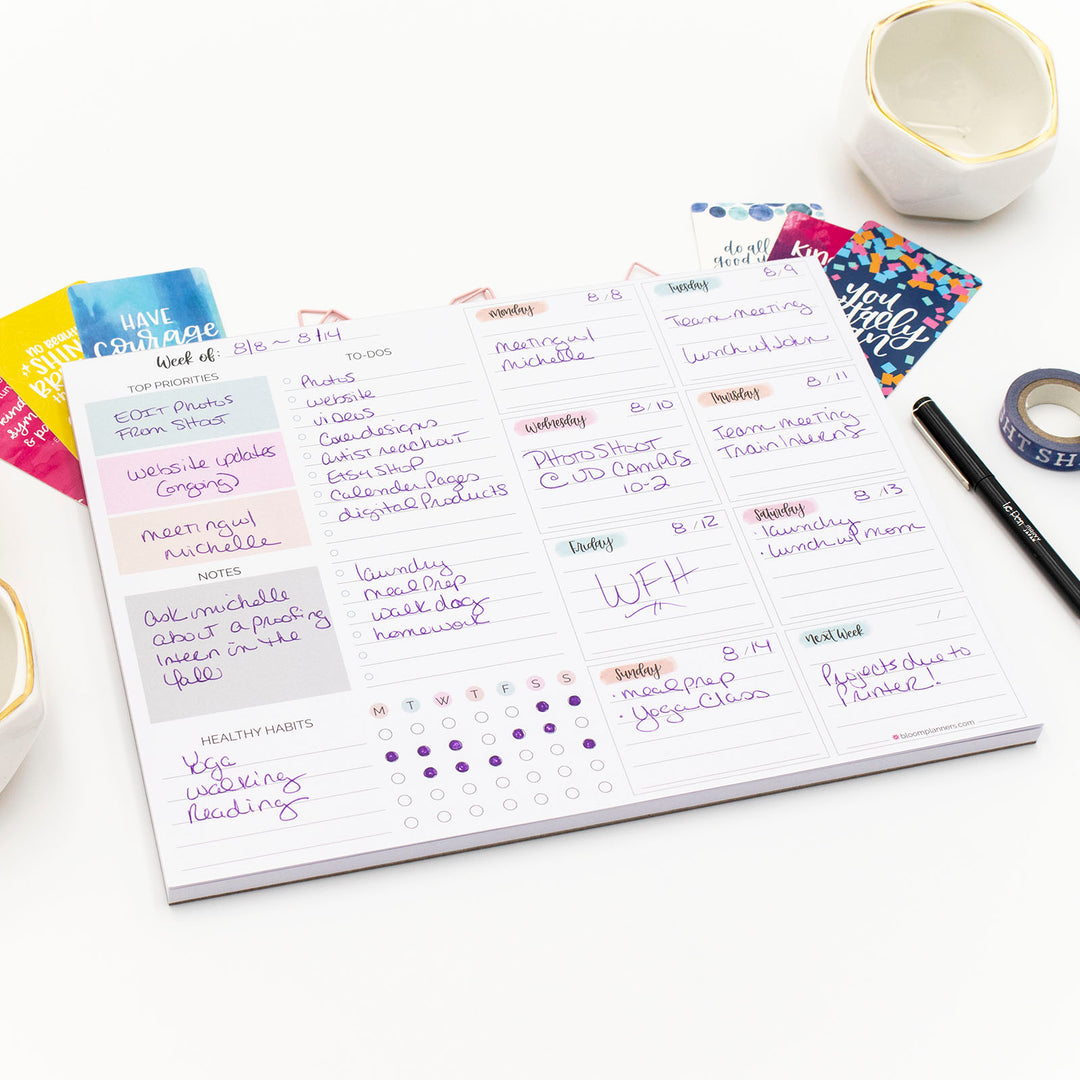 HAVE
courage
NO BEAU
SHIN
BRI
kind
sym
& pa
do all
good
KIN
you
totally
Week of: 8/8 ~ 8/14
TOP PRIORITIES
EDIT Photos
From Shoot
website updates
(ongoing)
meeting w/
michelle
NOTES
ask michelle
about a proofing
Intern in the
fall
HEALTHY HABITS
Yoga
walking
Reading
TO-DOS
Photos
website
videos
Coverdesigns
Artist reachout
Etsy Shop
Calender Pages
digital Products
laundry
meal prep
walk dog
homework
M T W T F S S
Monday 8/8
meeting w/
michelle
Tuesday 8/9
Team meeting
lunch w/ John
Wednesday 8/10
Photoshoot
@ UD Campus
10-2
Thursday 8/11
Team meeting
Train Interns
Friday 8/12
WFH
Saturday 8/13
• laundry
• lunch w/ mom
Sunday 8/14
• meal prep
• Yoga Class
Next Week /
Projects due to
printer!
bloomplanners.com
Le Pen
JAPAN
HT SH